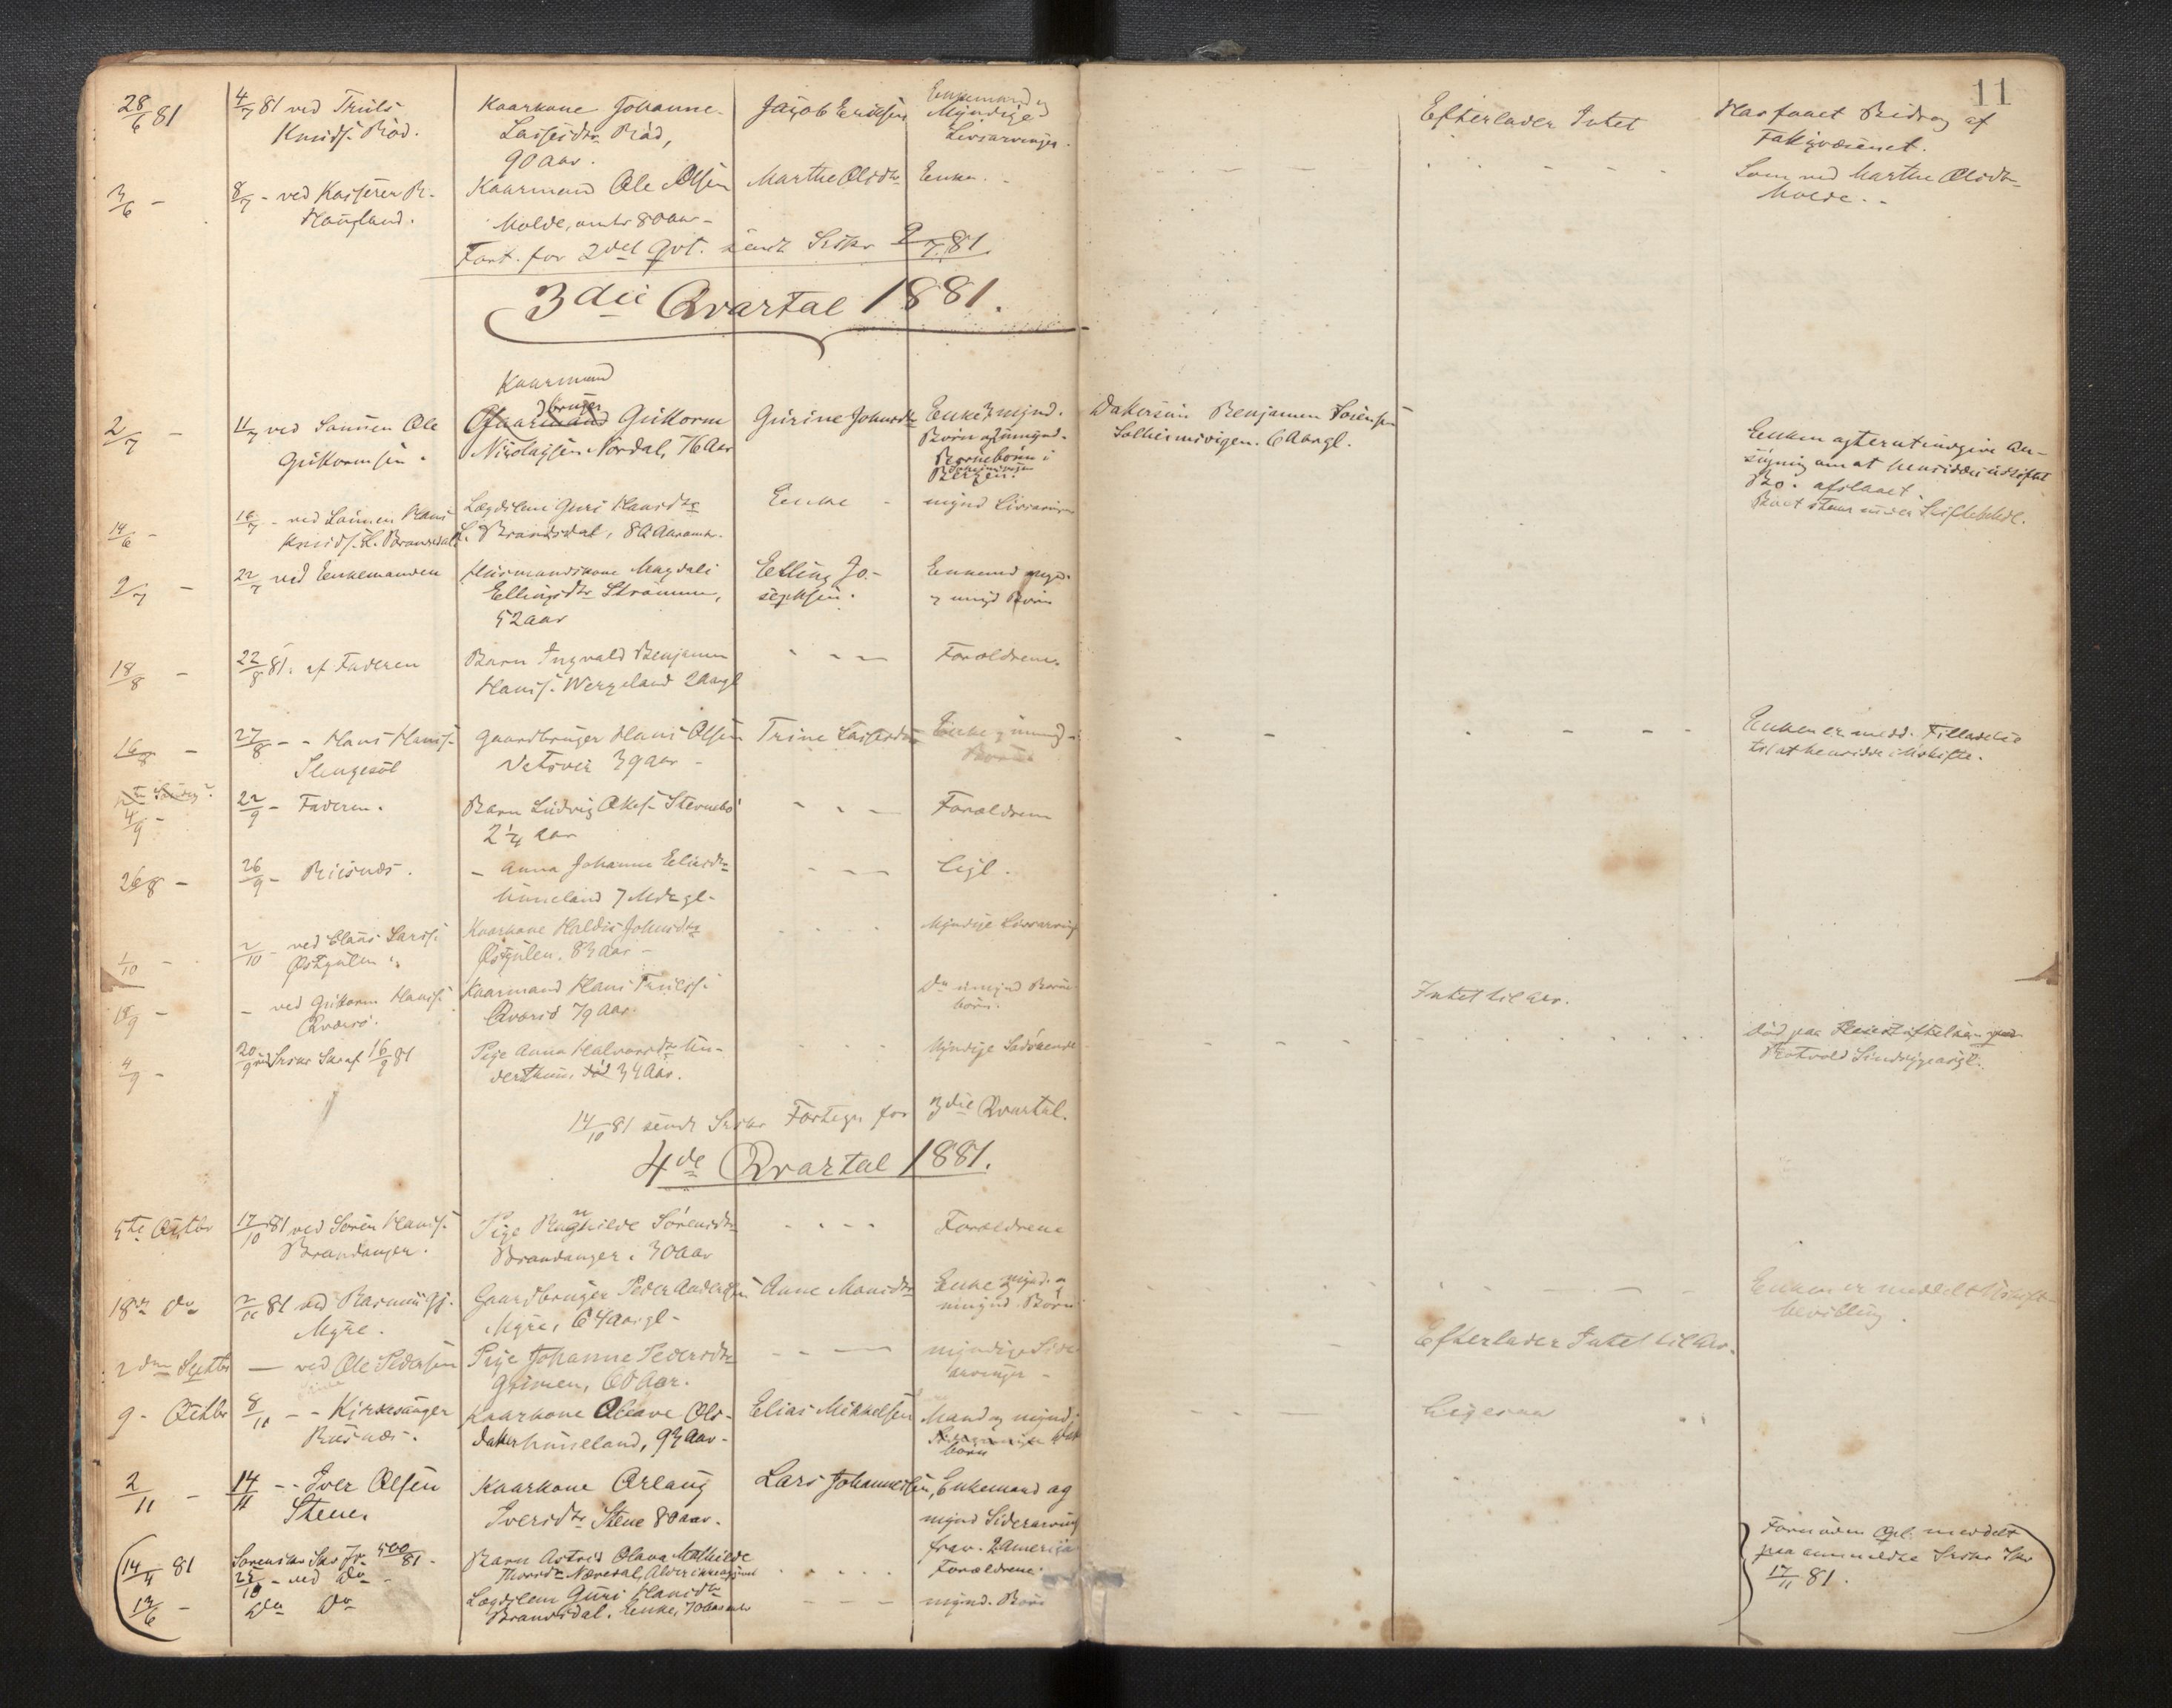 11
28/6 81
4/7 81 ved Truls
Knuds. Röd.
Kaarkone Johanne
Lassesdtr Röd,
90 Aar.
Jacob Eriksen
Enkemand og
Myndige
Livsarvinger.
Efterlader Intet
Har faaet Bidrag af
Fattigvæsenet.
3/6 -
8/7 - ved Kasserer R.
Haugland.
Kaarmand Ole Olsen
Molde, omtr 80 aar -
Marthe Olsdtr
Enke.
Som ved Marthe Olsdtr
Molde.
Fort. for 2det Qvt. sendt Sskr 9/7 81.
3die Qvartal 1881.
2/7 -
11/7 ved Sönnen Ole
Guttormsen.
Kaarmand
bruger
Guttorm
Nikolaysen Nordal, 76 Aar
Gurine Johnsdtr
Enke, mynd.
Børn og umynd.
Børnebørn i
Bergen.
Dattersøn Benjamin Sörensen
Solheimsvigen. 6 Aargl.
Enken agter at indgive An-
søgning om at hensidde i uskiftet
Bo. afslaaet.
Boet staar under Skiftebehdl.
14/6 -
16/7 - ved Sönnen Hans
Knuds. L. Brandsdal
Lægdslem Guri Hansdtr
L. Brandsdal, 80 Aar omtr.
Enke -
mynd Livsarvinger
9/7 -
22/7 ved Enkemanden
Huusmandskone Magdeli
Ellingsdtr Strömmen,
52 aar
Elling Jo-
sephsen.
Enkemd mynd.
og umynd Børn
18/8 -
22/8 81. af Faderen
Barn Ingvald Benjamin
Hanss. Wergeland 2 Aargl
- - -
Forældrene.
16/8 -
27/8 - - Hans Hanss.
Slengesöl
Gaardbruger Hans Olsen
Vetvik 39 aar -
Trine Lassesdtr
Enke og umynd-
Børn
Enken er medd. Tilladelse
til at hensidde i Uskifte.
4/9 -
22/9 - Faderen.
Barn Ludvig Akss. Steensbö
2 1/4 Aar
- - -
Forældrene
26/8 -
26/9 - Riisnæs.
- Anna Johanne Eliasdtr
Huneland 7 Mdr gl.
- - -
Ligl.
1/10 -
2/10 - ved Claus Larss.
Østgulen
Kaarkone Haldis Johnsdtr
Østgulen. 83 Aar -
Myndige Livsarving
18/9 -
- ved Guttorm Hanss.
Qværsö.
Kaarmand Hans Trulss.
Qværsö 79 Aar.
Do umynd Børne
børn.
Intet til Arv.
4/9 -
20/9 ved Sskr Skr af 16/9 81
Pige Anna Halvorsdtr Un-
derthun, död 34 Aar.
Myndige Södskende
död paa Pleiestiftelsen
Rotvold Sindssygeasyl.
14/10 81 sendt Sskr Fortegn for 3die Qvartal.
4de Qvartal 1881.
5te Octbr
17/10 81 ved Sören Hanss.
Brandanger.
Pige Ragnhilde Sörensdtr
Brandanger. 30 Aar
- - - -
Forældrene
18de do
2/11 81 ved Rasmus
Myre.
Gaardbruger Peder Andersen
Myre, 64 Aar gl-
Anne Monsdtr
Enke, mynd. og
umynd Børn
Enken er meddelt Uskift-
bevilling.
2den Septbr
— ved Ole Pedersen
Pige Johanne Pedersdtr
Grimen, 60 Aar.
- - —
myndige Side
arvinger -
Efterlader Intet til Arv.
9- Octbr
8/11 - - Kirkesanger
Riisnæs.
Kaarkone Oleave Ols-
datter Huneland, 93 Aar-
Elias Mikkelsen
Mand og mynd.
børn
Ligesaa
2/11 -
14/11 - - Iver Olsen
Stene.
Kaarkone Orlaug
Iversdtr Stene 80 aar.
Lars Johannessen,
Enkemand og
mynd Sidearving
frav. i Amerika
14/4 81
Sorenskr Skr Jr 500/81 -
25/10 - ved do -
Barn Astrid Olava Mathilde
Thorsdtr Næresdal, Alder ikke opgivet
- - - -
Forældrene.
Fornøden Opl. meddelt
paa anmeldte Sskr Skr
17/11 81.
13/6 -
Do Do
Lægdslem Guri Hansdtr
Brandsdal. Enke, 70 Aar omtr
- - -
mynd. Børn